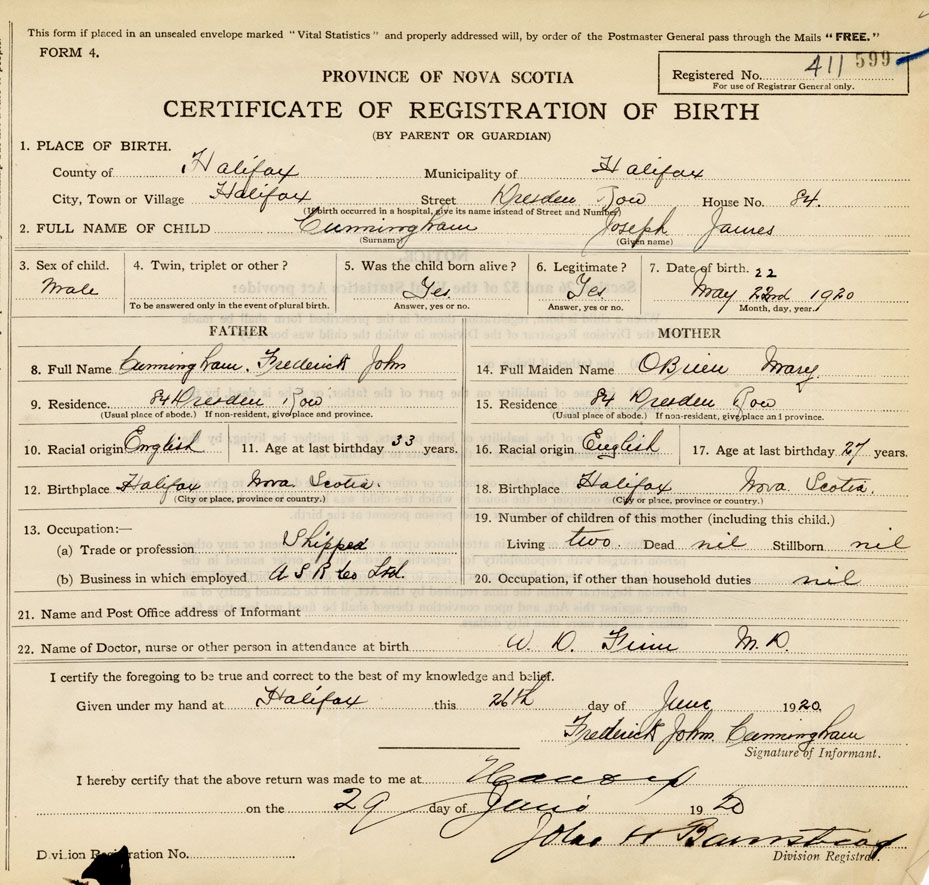 This form if placed in an unsealed envelope marked "Vital Statistics" and properly addressed will, by order of the Postmaster General pass through the Mails "FREE."
FORM 4.
Registered No. 411 599
For use of Registrar General only.
PROVINCE OF NOVA SCOTIA
CERTIFICATE OF REGISTRATION OF BIRTH
(BY PARENT OR GUARDIAN)
1. PLACE OF BIRTH.
County of Halifax Municipality of Halifax
City, Town or Village Halifax Street Dresden Row House No. 84.
(If birth occurred in a hospital, give its name instead of Street and Number)
2. FULL NAME OF CHILD Cunningham Joseph James
(Surname) (Given name)
3. Sex of child. 4. Twin, triplet or other? 5. Was the child born alive? 6. Legitimate? 7. Date of birth. 22
Male Yes. Yes. May 22nd 1920
To be answered only in the event of plural birth. Answer, yes or no. Answer, yes or no. Month, day, year.
FATHER
8. Full Name Cunningham, Frederick John
9. Residence 84 Dresden Row
(Usual place of abode.) If non-resident, give place and province.
10. Racial origin English 11. Age at last birthday 33 years.
12. Birthplace Halifax Nova Scotia
(City or place, province or country.)
13. Occupation:—
(a) Trade or profession Shipper
(b) Business in which employed A S R Co Ltd.
MOTHER
14. Full Maiden Name OBrien Mary.
15. Residence 84 Dresden Row
(Usual place of abode.) If non-resident, give place and province.
16. Racial origin English 17. Age at last birthday 27 years.
18. Birthplace Halifax Nova Scotia.
(City or place, province or country.)
19. Number of children of this mother (including this child.)
Living two Dead nil Stillborn nil
20. Occupation, if other than household duties nil
21. Name and Post Office address of Informant
22. Name of Doctor, nurse or other person in attendance at birth W. D. Finn M.D.
I certify the foregoing to be true and correct to the best of my knowledge and belief.
Given under my hand at Halifax this 26th day of June 1920.
Frederick John Cunningham
Signature of Informant.
I hereby certify that the above return was made to me at
on the 29 day of June 1920
John H Barnstead
Division Registrar.
Division Registration No.